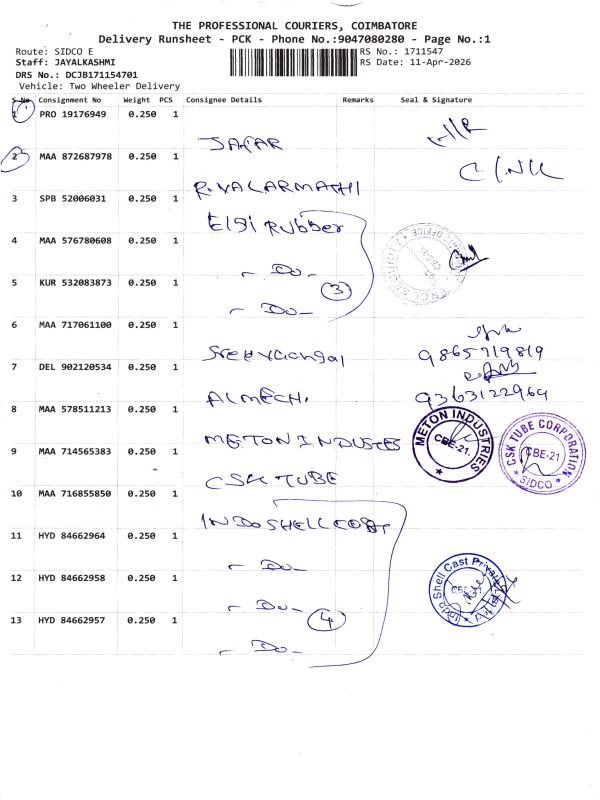 THE PROFESSIONAL COURIERS, COIMBATORE
Delivery Runsheet - PCK - Phone No.:9047080280 - Page No.:1
Route: SIDCO E
RS No.: 1711547
Staff: JAYALKASHMI
RS Date: 11-Apr-2026
DRS No.: DCJB171154701
Vehicle: Two Wheeler Delivery
S No Consignment No Weight PCS Consignee Details Remarks Seal & Signature
1 PRO 19176949 0.250 1
JAFAR
2 MAA 872687978 0.250 1
R.VALARMATHI
3 SPB 52006031 0.250 1
Elgi Rubber
4 MAA 576780608 0.250 1
- Do -
5 KUR 532083873 0.250 1
3
- Do -
6 MAA 717061100 0.250 1
9865719819
7 DEL 902120534 0.250 1
ALMECH.
9363122964
8 MAA 578511213 0.250 1
METON INDUSTES
METON INDUSTRIES
CBE-21.
9 MAA 714565383 0.250 1
CSK TUBE
CSK TUBE CORPORATION
CBE-21
SIDCO
10 MAA 716855850 0.250 1
INDOSHELL COST
11 HYD 84662964 0.250 1
- Do -
12 HYD 84662958 0.250 1
- Do -
4
Shell Cast Private
13 HYD 84662957 0.250 1
- Do -